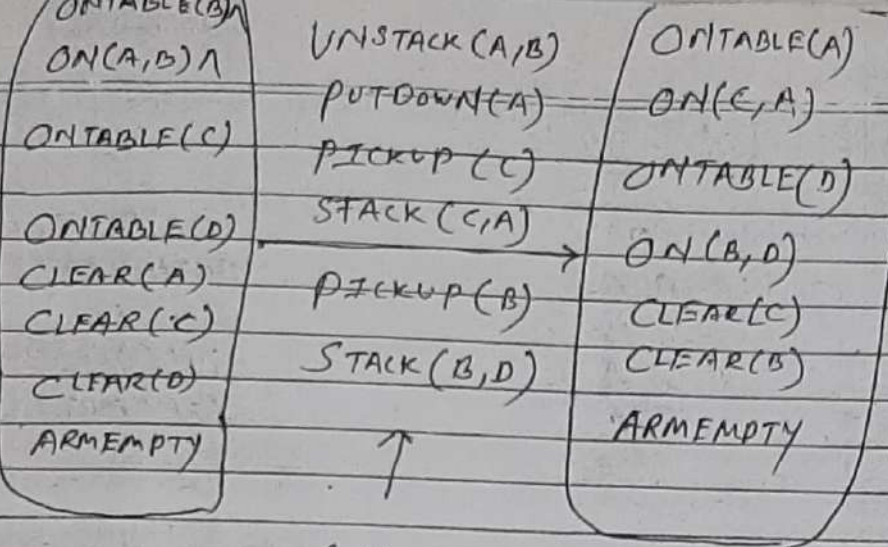 ONTABLE(B)∧
ON(A,B) ∧
ONTABLE(C)
ONTABLE(D)
CLEAR(A)
CLEAR(C)
CLEAR(D)
ARMEMPTY
UNSTACK(A,B)
PUTDOWN(A)
PICKUP(C)
STACK(C,A)
PICKUP(B)
STACK(B,D)
ONTABLE(A)
ON(C,A)
ONTABLE(D)
ON(B,D)
CLEAR(C)
CLEAR(B)
ARMEMPTY